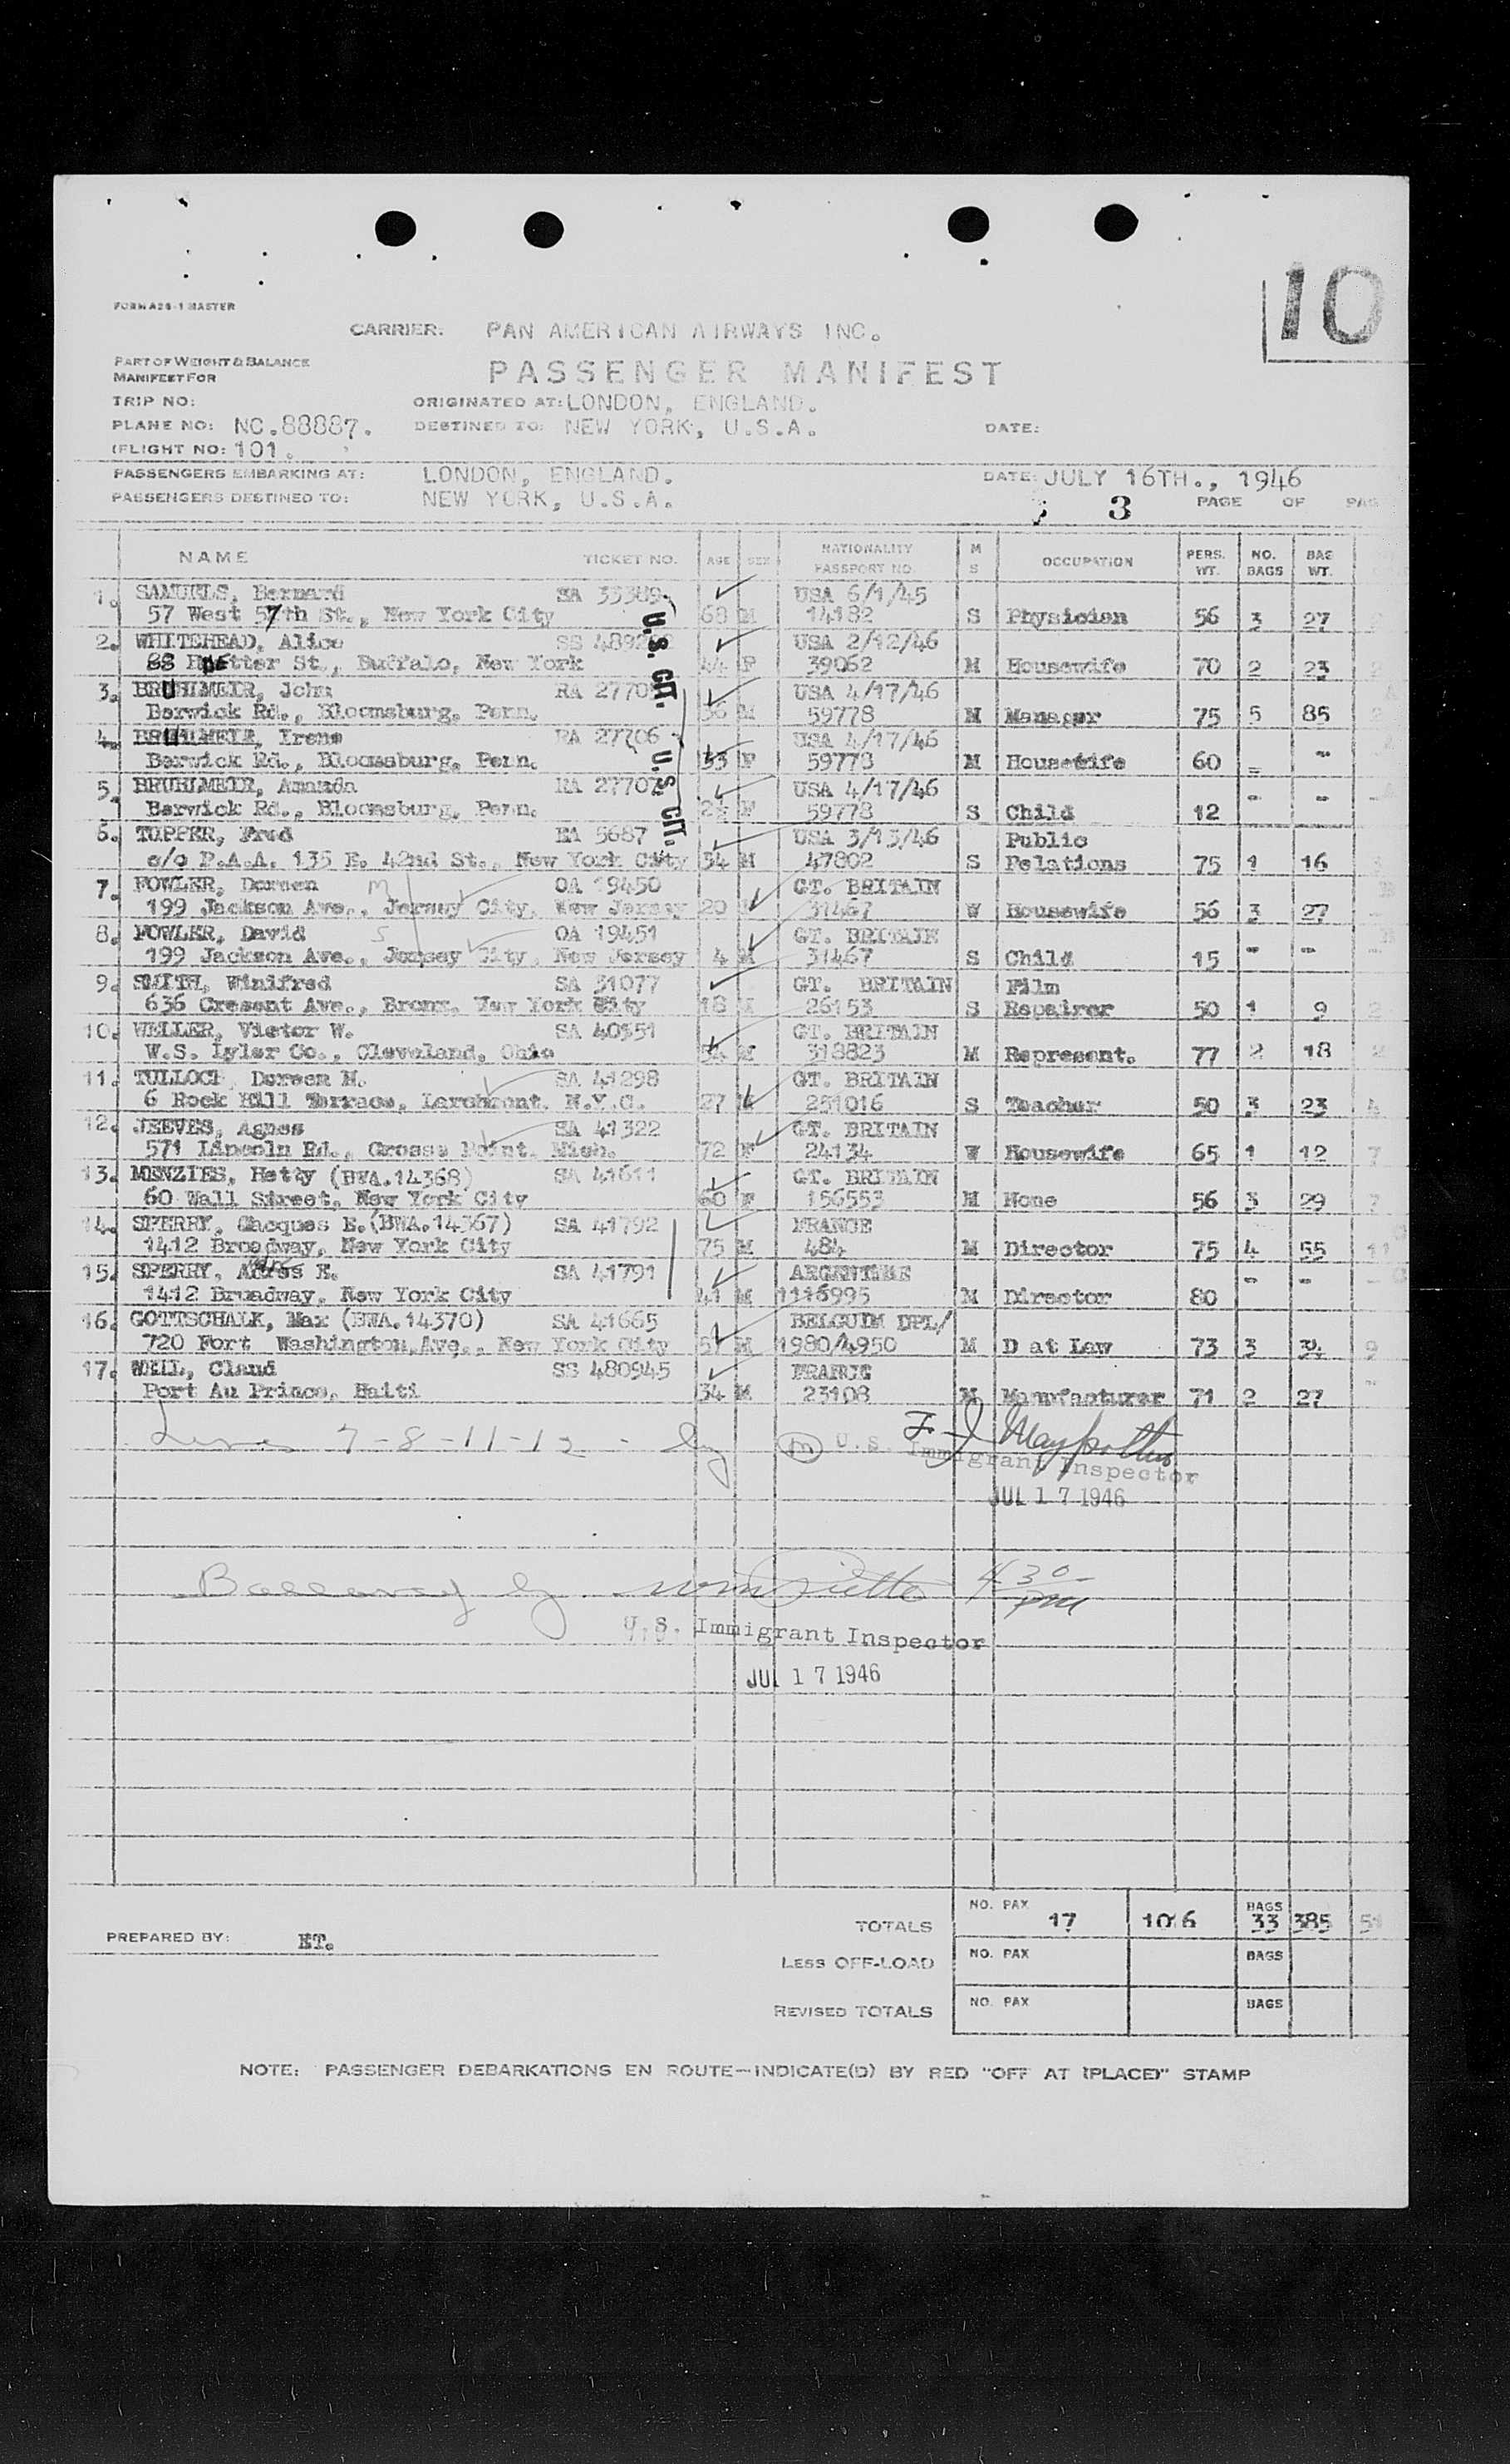 10
FORM A28-1 MASTER
CARRIER: PAN AMERICAN AIRWAYS INC.
PART OF WEIGHT & BALANCE
MANIFEST FOR
PASSENGER MANIFEST
TRIP NO: ORIGINATED AT: LONDON, ENGLAND.
PLANE NO: NC.88887. DESTINED TO: NEW YORK, U.S.A. DATE:
(FLIGHT NO: 101.
PASSENGERS EMBARKING AT: LONDON, ENGLAND. DATE: JULY 16TH., 1946
PASSENGERS DESTINED TO: NEW YORK, U.S.A. 3 PAGE OF PAG
NAME TICKET NO. AGE SEX NATIONALITY PASSPORT NO. M S OCCUPATION PERS. WT. NO. BAGS BAG WT.
1. SAMUELS, Bernard EA 33389 USA 6/1/45
57 West 57th St., New York City 68 M 14182 S Physician 56 3 27
2. WHITEHEAD, Alice SS 4892 USA 2/12/46
88 St., Buffalo, New York 44 F 39062 M Housewife 70 2 23
3. BRUHLMEIR, John RA 2770 USA 4/17/46
Berwick Rd., Bloomsburg, Penn. 36 M 59778 M Manager 75 5 85
4. BRUHLMEIR, Irene RA 27706 USA 4/17/46
Berwick Rd., Bloomsburg, Penn. 33 F 59778 M Housewife 60 - -
5. BRUHLMEIR, Amanda RA 27707 USA 4/17/46
Berwick Rd., Bloomsburg, Penn. 2½ F 59778 S Child 12 - -
6. TUPPER, Fred EA 5687 USA 3/13/46 Public
c/o P.A.A. 135 E. 42nd St., New York City 34 M 47802 S Relations 75 1 16
7. FOWLER, Doreen M OA 19450 GT. BRITAIN
199 Jackson Ave., Jersey City, New Jersey 20 31467 W Housewife 56 3 27
8. FOWLER, David S OA 19451 GT. BRITAIN
199 Jackson Ave., Jersey City, New Jersey 4 M 31467 S Child 15 - -
9. SMITH, Winifred SA 31077 GT. BRITAIN Film
636 Cresent Ave., Bronx, New York City 18 26153 S Repairer 50 1 9
10. WELLER, Victor W. SA 40951 GT. BRITAIN
W.S. Lyler Co., Cleveland, Ohio 54 M 318823 M Represent. 77 2 18
11. TULLOCH, Doreen M. SA 41298 GT. BRITAIN
6 Rock Hill Terrace, Larchmont, N.Y.C. 27 251016 S Teacher 50 3 23 4
12. JEEVES, Agnes SA 41322 GT. BRITAIN
571 Lincoln Rd., Grosse Point. Mich. 72 F 24134 W Housewife 65 1 12 7
13. MENZIES, Hetty (BWA.14368) SA 41611 GT. BRITAIN
60 Wall Street, New York City 60 F 156553 M None 56 3 29 7
14. SPERRY, Chacques E.(BWA.14367) SA 41792 FRANCE
1412 Broadway, New York City 75 M 484 M Director 75 4 55 11
15. SPERRY, E. SA 41791 ARGENTINE
1412 Broadway, New York City 41 M 1116995 M Director 80 - -
16. GOTTSCHALK, Max (BWA.14370) SA 41665 BELGUIM DPL/
720 Fort Washington,Ave., New York City 57 M 1980/4950 M D at Law 73 3 34 9
17. WEIL, Claud SS 480945 FRANCE
Port Au Prince, Haiti 34 M 23108 M Manufacturer 71 2 27
U.S. CIT. U.S. CIT.
Lines 7-8-11-12 - by
U.S. Immigrant Inspector
JUL 17 1946
Balance by 4 30 PM
U.S. Immigrant Inspector
JUL 17 1946
TOTALS NO. PAX 17 1016 BAGS 33 385 51
PREPARED BY: ET.
LESS OFF-LOAD NO. PAX BAGS
REVISED TOTALS NO. PAX BAGS
NOTE: PASSENGER DEBARKATIONS EN ROUTE—INDICATE(D) BY RED "OFF AT (PLACE)" STAMP